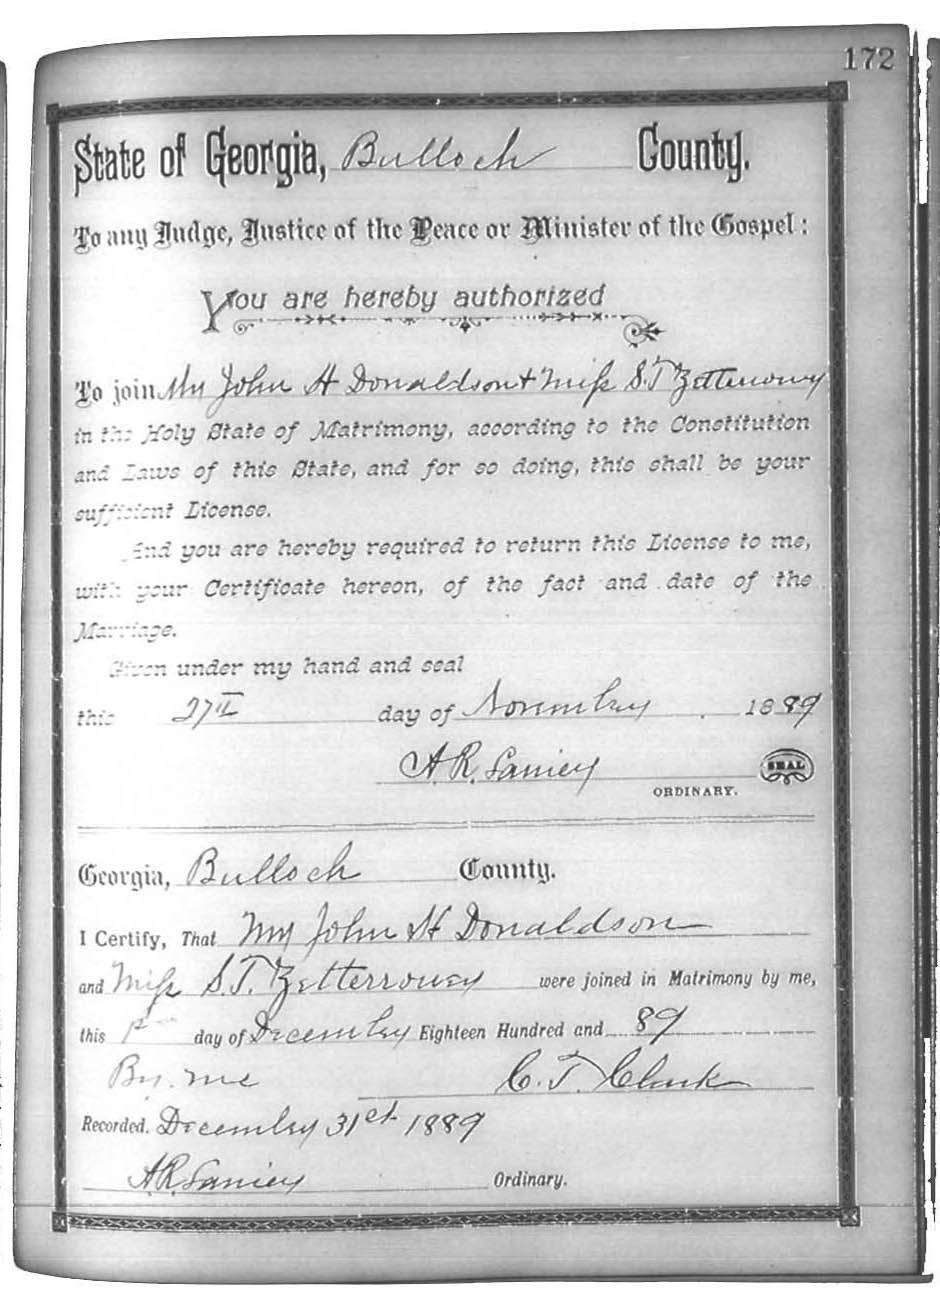 172
State of Georgia, Bulloch County.
To any Judge, Justice of the Peace or Minister of the Gospel:
You are hereby authorized
To join Mr John H Donaldson + Miss S.T Zetterower
in the Holy State of Matrimony, according to the Constitution
and Laws of this State, and for so doing, this shall be your
sufficient License.
And you are hereby required to return this License to me,
with your Certificate hereon, of the fact and date of the
Marriage.
Given under my hand and seal
this 27 day of November 1889
A.R. Lanier SEAL
ORDINARY.
Georgia, Bulloch County.
I Certify, That Mr John H Donaldson
and Miss S.T. Zetterower were joined in Matrimony by me,
this 1st day of December Eighteen Hundred and 89
By. me C. T. Clark
Recorded. December 31st 1889
A.R. Lanier Ordinary.